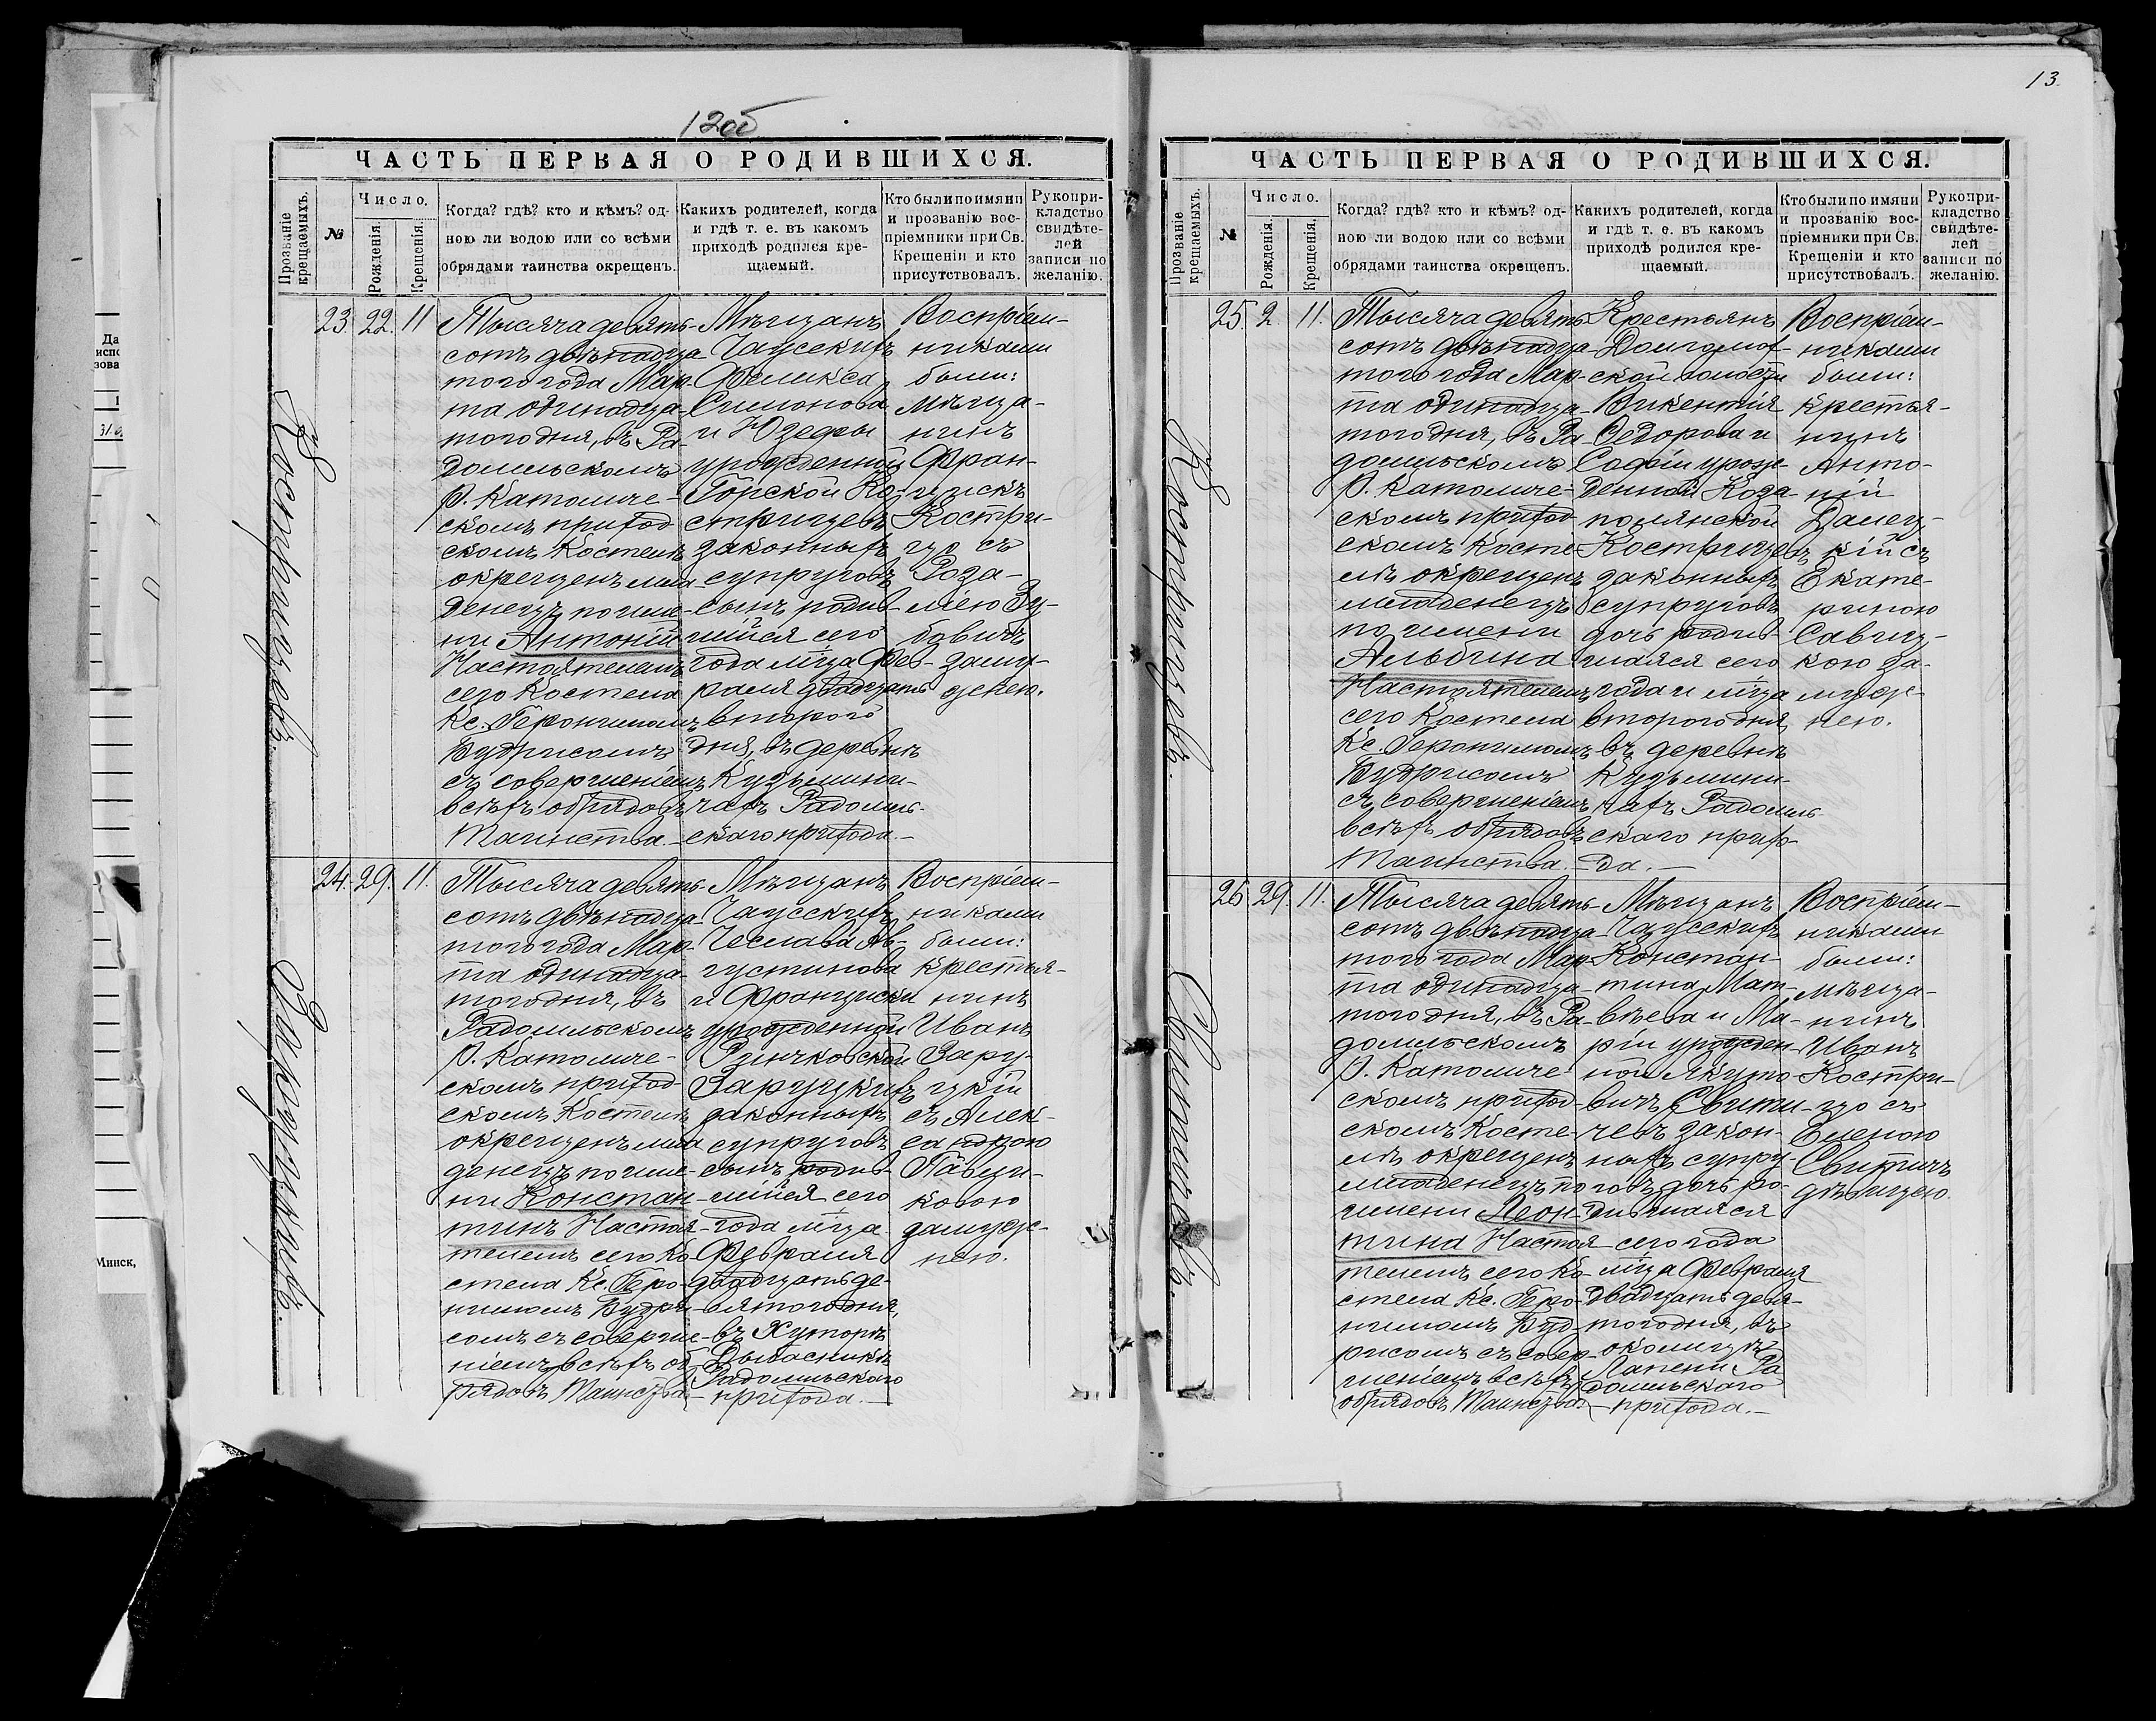 12об
ЧАСТЬ ПЕРВАЯ О РОДИВШИХСЯ.
Прозваніе крещаемыхъ.
№
Число.
Рожденія.
Крещенія.
Когда? гдѣ? кто и кѣмъ? од-
ною ли водою или со всѣми
обрядами таинства окрещенъ.
Какихъ родителей, когда
и гдѣ т. е. въ какомъ
приходѣ родился кре-
щаемый.
Кто были по имяни
и прозванію вос-
пріемники при Св.
Крещеніи и кто
присутствовалъ.
Рукопри-
кладство
свидѣте-
лей
записи по
желанію.
Кострицевъ.
23. 22. 11
Тысяча девять-
сотъ двѣнадца-
того года Мар-
та одинадца-
того дня, въ Ра-
домльскомъ
Р. Католиче-
скомъ приход-
скомъ Костелѣ
окрещенъ мла-
денецъ по име-
ни Антоній
Настоятелемъ
сего Костела
Кс. Геронимомъ
Будрисомъ
съ совершеніемъ
всѣхъ обрядовъ
Таинства.
Мѣщанъ
Чаусскихъ
Феликса
Симонова
и Юзефы
урожденной
Горской Ко-
стрицевъ
законныхъ
супруговъ
сынъ родив-
шійся сего
года м҃ца Фев-
раля двадцать
второго
дня, въ деревнѣ
Кузьмини-
чахъ Радомль-
скаго прихода.
Воспріем-
никами
были:
мѣща-
нинъ
Фран-
цискъ
Костри-
цо съ
Роза-
ліею Зу-
бовичъ
заму-
жнею.
Заруцкихъ.
24. 29. 11.
Тысяча девять-
сотъ двѣнадца-
того года Мар-
та одинадца-
того дня, въ
Радомльскомъ
Р. Католиче-
скомъ приход-
скомъ Костелѣ
окрещенъ мла-
денецъ по име-
ни Констан-
тинъ Настоя-
телемъ сего Ко-
стела Кс. Геро-
нимомъ Будри-
сомъ съ соверше-
ніемъ всѣхъ об-
рядовъ Таинства
Мѣщанъ
Чаусскихъ
Чеслава Ав-
густинова
и Францишки
урожденной
Ринчковской
Заруцкихъ
законныхъ
супруговъ
сынъ родив-
шійся сего
года м҃ца
Февраля
двадцать де-
вятого дня,
въ Хуторѣ
Радомльского
прихода.
Воспріем-
никами
были:
крестья-
нинъ
Иванъ
Зару-
цкій
съ Алек-
сандрою
замуж-
нею.
13.
ЧАСТЬ ПЕРВАЯ О РОДИВШИХСЯ.
Прозваніе крещаемыхъ.
№
Число.
Рожденія.
Крещенія.
Когда? гдѣ? кто и кѣмъ? од-
ною ли водою или со всѣми
обрядами таинства окрещенъ.
Какихъ родителей, когда
и гдѣ т. е. въ какомъ
приходѣ родился кре-
щаемый.
Кто были по имяни
и прозванію вос-
пріемники при Св.
Крещеніи и кто
присутствовалъ.
Рукопри-
кладство
свидѣте-
лей
записи по
желанію.
Кострицевъ.
25. 2. 11.
Тысяча девять-
сотъ двѣнадца-
того года Мар-
та одинадца-
того дня, въ Ра-
домльскомъ
Р. Католиче-
скомъ приход-
скомъ Косте-
лѣ окрещенъ
младенецъ
по имени
Альбина
Настоятелемъ
сего Костела
Кс. Геронимомъ
Будрисомъ
съ совершеніемъ
всѣхъ обрядовъ
Таинства.
Крестьянъ
Долгомох-
ской волости
Викентія
Ѳедорова и
Софіи урож-
денной Коза-
полянской
Кострицевъ
законныхъ
супруговъ
дочь родив-
шаяся сего
года и м҃ца
второго дня,
въ деревнѣ
Кузьмини-
чахъ Радомль-
скаго прихо-
да.
Воспріем-
никами
были:
крестья-
нинъ
Анто-
ній
Далец-
кій съ
Екате-
риною
Савиц-
кою за-
муж-
нею.
Свитичевъ.
26. 29. 11.
Тысяча девять-
сотъ двѣнадца-
того года Мар-
та одинадца-
того дня, въ Ра-
домльскомъ
Р. Католиче-
скомъ приход-
скомъ Косте-
лѣ окрещенъ
младенецъ по
имени Леон-
тина Настоя-
телемъ сего Ко-
стела Кс. Геро-
нимомъ Буд-
рисомъ съ совер-
шеніемъ всѣхъ
обрядовъ Таинства.
Мѣщанъ
Чаусскихъ
Констан-
тина Мат-
вѣева и Ма-
ріи урожден-
ной Якуто-
вичъ Свити-
чевъ закон-
ныхъ супру-
говъ дочь ро-
дившаяся
сего года
м҃ца Февраля
двадцать девя-
того дня, въ
околицѣ
Лапени Ра-
домльскаго
прихода.
Воспріем-
никами
были:
мѣща-
нинъ
Иванъ
Костри-
цо съ
Еленою
Свитичъ
дѣвицею.
Минск,